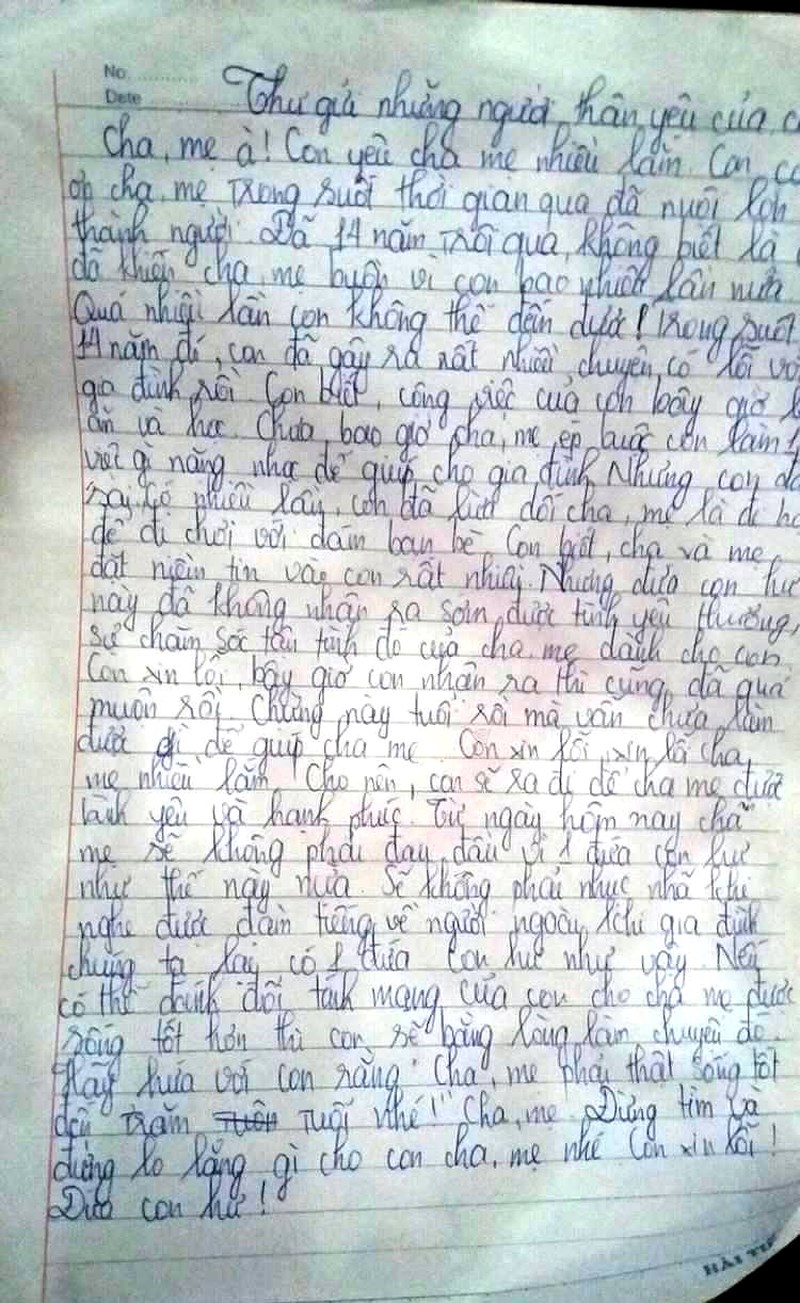 No.
Date
Thư gửi những người thân yêu của
Cha, mẹ à! Con yêu cha mẹ nhiều lắm. Con
ơn cha, mẹ trong suốt thời gian qua đã nuôi con
thành người. Đã 14 năm trôi qua, không biết là
đã khiến cha, mẹ buồn vì con bao nhiêu lần nữa
Quá nhiều lần con không thể đếm được! Trong suốt
14 năm đó, con đã gây ra rất nhiều chuyện có lỗi
gia đình rồi. Con biết, công việc của con bây giờ
ăn và học. Chưa bao giờ cha, mẹ ép buộc con làm 1
việc gì nặng nhọc để giúp cho gia đình. Nhưng con
nhiều lần, con đã lừa dối cha, mẹ là đi
để đi chơi với đám bạn bè. Con biết, cha và mẹ
đặt niềm tin vào con rất nhiều. Nhưng đứa con hư
này đã không nhận ra sớm được tình yêu thương,
sự chăm sóc tận tình đó của cha mẹ dành cho con.
Con xin lỗi, bây giờ con nhận ra thì cũng đã quá
muộn rồi. Chừng này tuổi rồi mà vẫn chưa làm
được gì để giúp cha mẹ. Con xin lỗi, xin lỗi cha,
mẹ nhiều lắm. Cho nên, con sẽ ra đi để cha mẹ được
yên và hạnh phúc. Từ ngày hôm nay cha
mẹ sẽ không phải đau đầu vì 1 đứa con hư
như thế này nữa. Sẽ không phải nhục nhã khi
nghe được đàm tiếng về người ngoài khi gia đình
chúng ta lại có 1 đứa con hư như vậy. Nếu
có thể đánh đổi tính mạng của con cho cha mẹ được
sống tốt hơn thì con sẽ bằng lòng làm chuyện đó.
Hãy hứa với con rằng "Cha, mẹ phải thật sống tốt
đến trăm tuổi nhé!" Cha, mẹ. Đừng tìm và
đừng lo lắng gì cho con cha, mẹ nhé. Con xin lỗi!
Đứa con hư!
HẢI